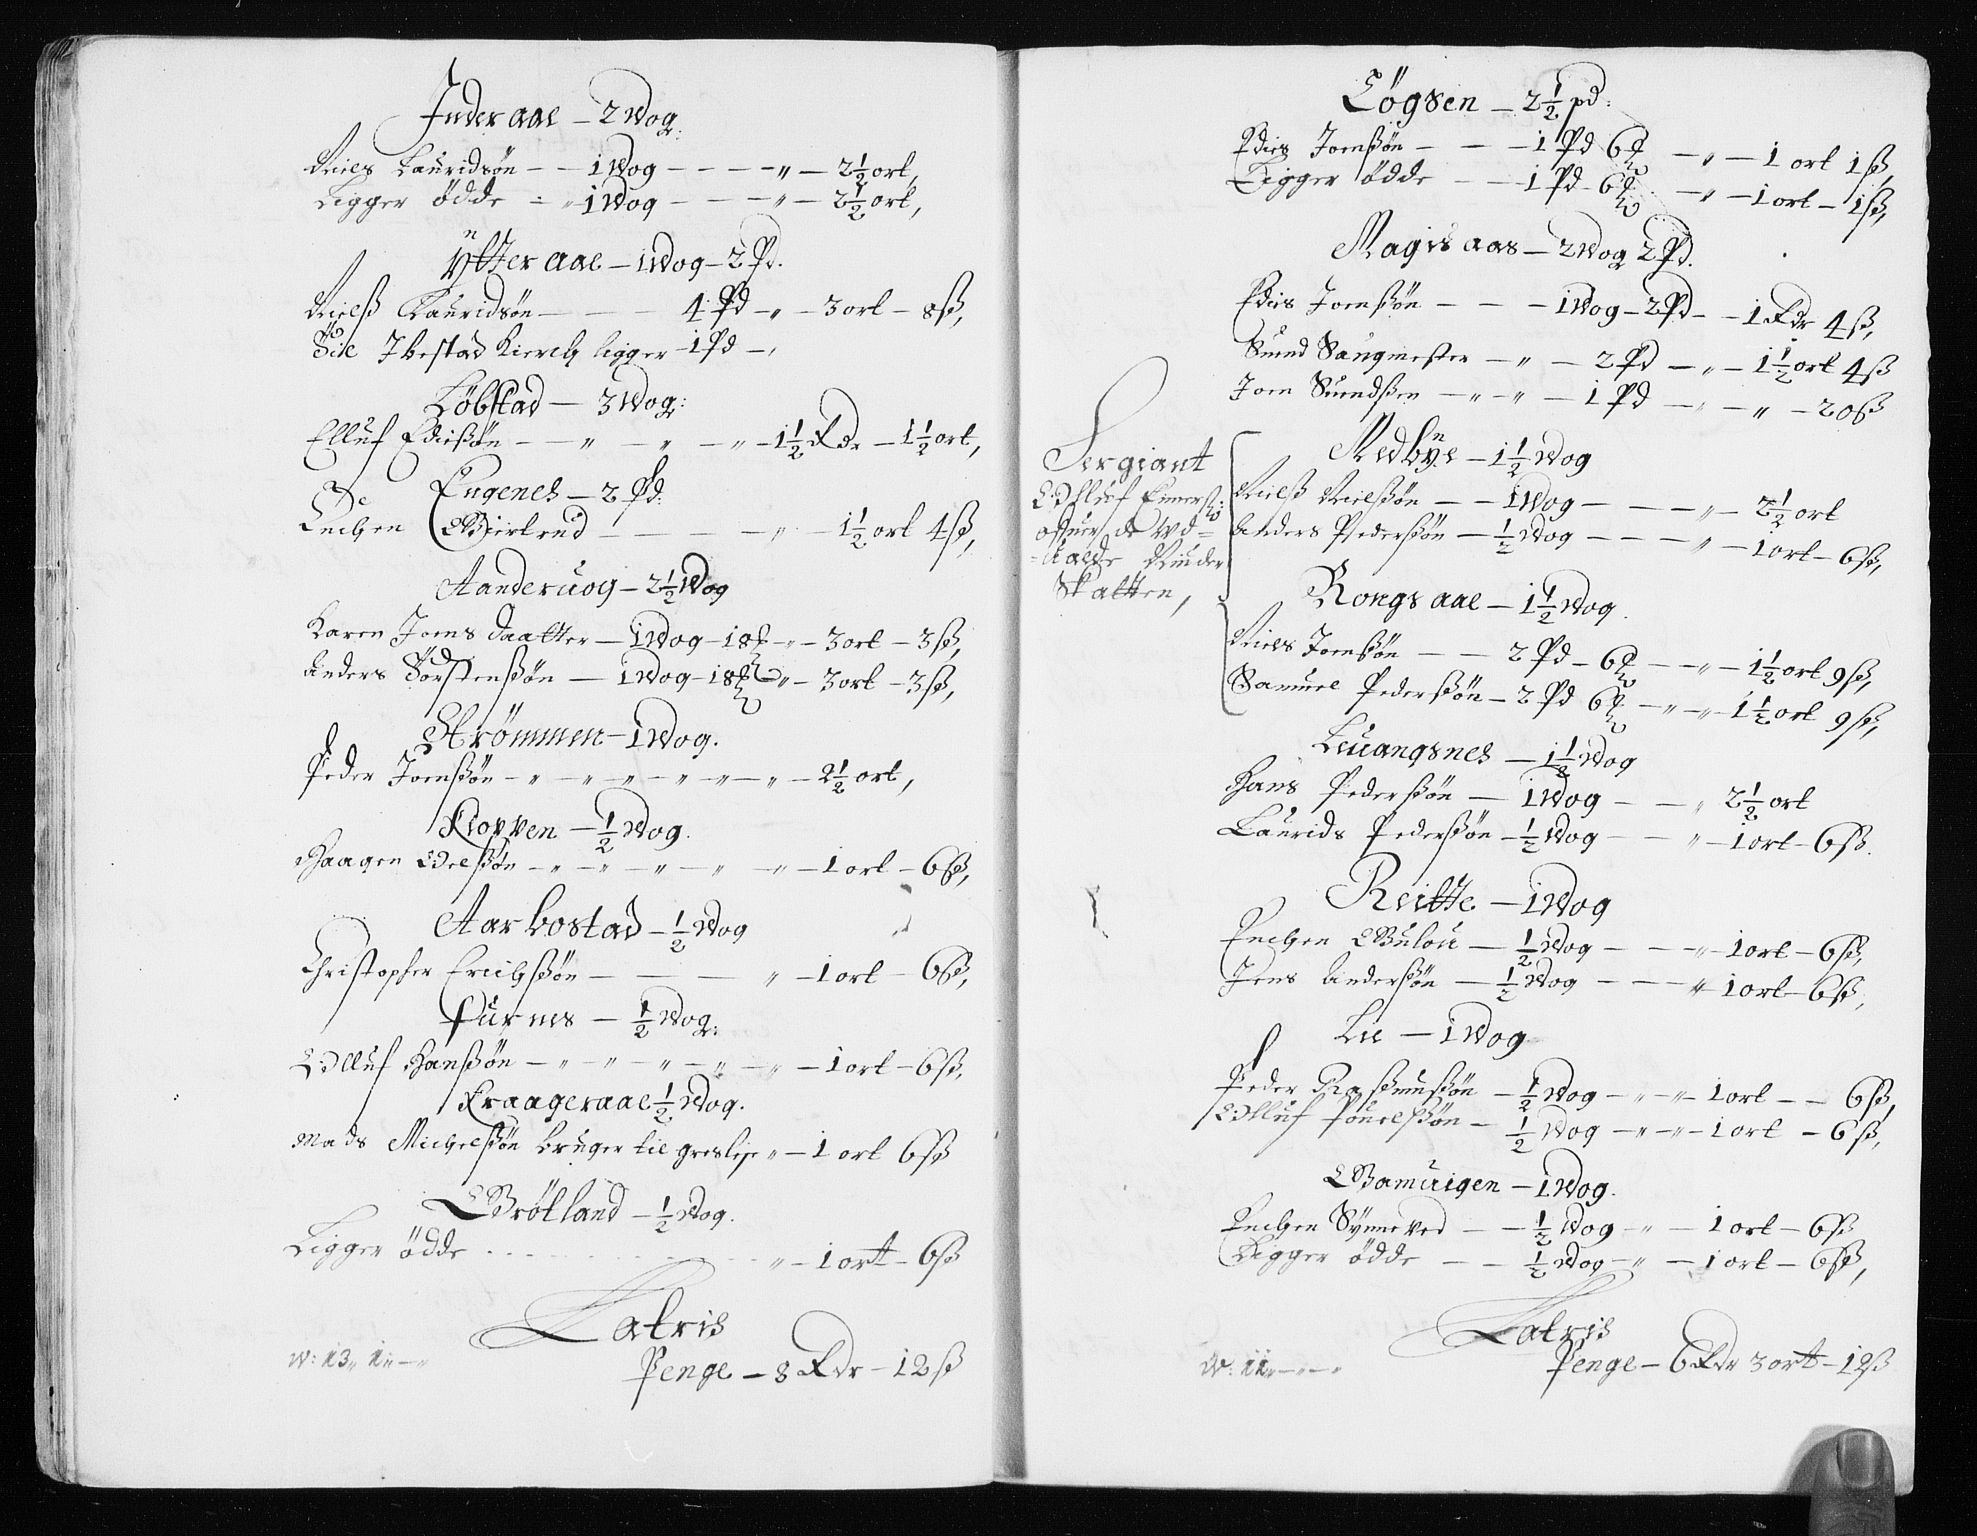 Inderaae – 2 Wog
Niels Lauridsøn – – 1 Wog – – – – „ – 2½ ort,
Ligger ödde – „ 1 Wog – – – „ – 2½ ort,
Ytteraae – 1 Wog – 2 Pd.
Nielß Lauridsøn – – – 4 Pd – „ – 3 ort – 8 ß,
Til Ibestad Kierch ligger – 1 Pd – „
Löbstad – 3 Wog:
Elluf Edisßøn – – „ – „ – „ – 1½ Rdr – 1½ ort,
Eugenes – 2 Pd:
De Encken Giertrud – – – – „ – 1½ ort 4 ß,
Aanderuog – 2½ Wog
Karen Joens daatter – 1 Wog – 18 – „ – 3 ort – 3 ß,
Anders Torstensßøn – 1 Wog – 18 – „ – 3 ort – 3 ß,
Strömmen – 1 Wog.
Peder Joensßøn – „ – „ – „ – „ – „ – „ – 2½ ort,
Kloppen – ½ Wog.
Haagen Oelsßøn – „ – „ – „ – „ – „ – 1 ort – 6 ß,
Aarbostad – ½ Wog
Christopher Erichsßøn – – – „ – 1 ort – 6 ß,
Furnes – ½ Wog:
Olluf Hansßøn – „ – „ – „ – „ – „ – 1 ort – 6 ß,
Kraageraae ½ Wog.
Mads Michelsßøn bruger til greslije „ – 1 ort 6 ß
Grötland – ½ Wog.
Ligger ödde – – – – – „ – 1 ort – 6 ß
Latris
Penge – 8 Rdr – 12 ß
W: 13 „ 1 „ – „
Lögsen – 2½ pd:
Edies Joensßøn – – – 1 Pd 6 – „ – 1 ort 1 ß,
Ligger ödde – – 1 Pd – 6 – „ – 1 ort – 1 ß,
Magis aas – 2 Wog 2 Pd.
Edies Joensßøn – – – 1 Wog – 2 Pd – – 1 Rdr 4 ß,
Suend Saugmester – „ – 2 Pd – „ – 1½ ort 4 ß
Joen Suendsßen – „ – „ – 1 Pd – „ – „ – 20 ß
Medbye – 1½ Wog
Nielß Nielsßøn – – 1 Wog – – – „ – 2½ ort
Anders Pedersßøn – ½ Wog – – – „ – 1 ort – 6 ß,
Sergiant
Olluf Einerst:
ofuer de Ud=
=
Skatten,
Rongs aae – 1½ Wog.
Niels Joensßøn – – 2 Pd – 6 – „ – 1½ ort 9 ß,
Samuel Pedersßøn – 2 Pd 6 – „ – „ – 1½ ort 9 ß,
Leuangsnes – 1½ Wog
Hans Pedersßøn – 1 Wog – – „ 2½ ort
Laurids Pedersßøn – ½ Wog – – „ – 1 ort – 6 ß.
Reitte – 1 Wog
Encken Gulou – ½ Wog – – „ – 1 ort – 6 ß,
Jens Andersßøn – ½ Wog – – – „ 1 ort – 6 ß,
Lie – 1 Wog
Peder Rasßmusßøn – ½ Wog – „ – „ – 1 ort – – 6 ß,
Olluf Pouelsßøn – ½ Wog – „ – „ – 1 ort – 6 ß,
Gamuigen – 1 Wog.
Encken Synneved – – ½ Wog – „ – 1 ort – 6 ß
Ligger ödde – – ½ Wog – „ – 1 ort – 6 ß,
Latris
Penge – 6 Rdr 3 ort – 12 ß
W: 11 „ – „ – „